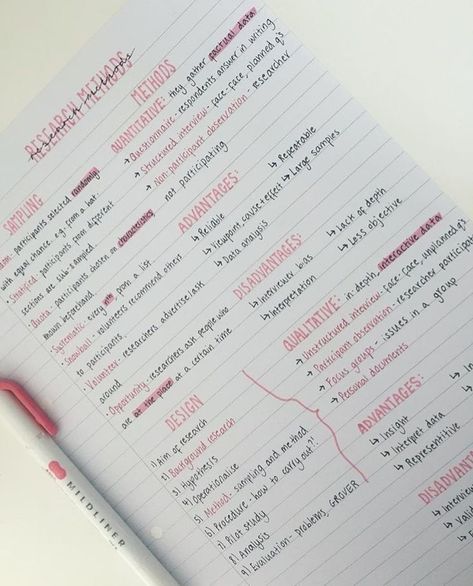 RESEARCH METHODS
research methods
SAMPLING
participants selected randomly
with equal chance. e.g. from a hat.
→ Stratified - participants from different
sections are sub-sampled.
→ Quota - participants chosen on characteristics
known beforehand
→ Systematic - every nth from a list
→ Snowball - volunteers recommend others
to participants
→ Volunteer - researchers advertise/ask
around
→ Opportunity - researchers ask people who
are at the place at a certain time
DESIGN
1) Aim of research
2) Background research
3) Hypothesis
4) Operationalise
5) Method - sampling and method
6) Procedure - how to carry out?!
7) Pilot study
8) Analysis
9) Evaluation - problems, GROVER
METHODS
QUANTITATIVE: they gather factual data
→ Questionnaire - respondents answer in writing
→ Structured interview - face-face, planned q's
→ Non-participant observation - researcher
not participating
ADVANTAGES:
↳ Reliable
↳ Viewpoint, cause + effect
↳ Data analysis
↳ Repeatable
↳ Large samples
DISADVANTAGES:
↳ Interviewer bias
↳ Interpretation
↳ Lack of depth
↳ Less objective
QUALITATIVE: in-depth, interactive data
→ Unstructured interview - face-face, unplanned q's
→ Participant observation - researcher
→ Focus groups - issues in a group
→ Personal documents
ADVANTAGES:
↳ Insight
↳ Interpret data
↳ Representitive
DISADVANT
↳ Interview
↳ Valid
MILDLINER